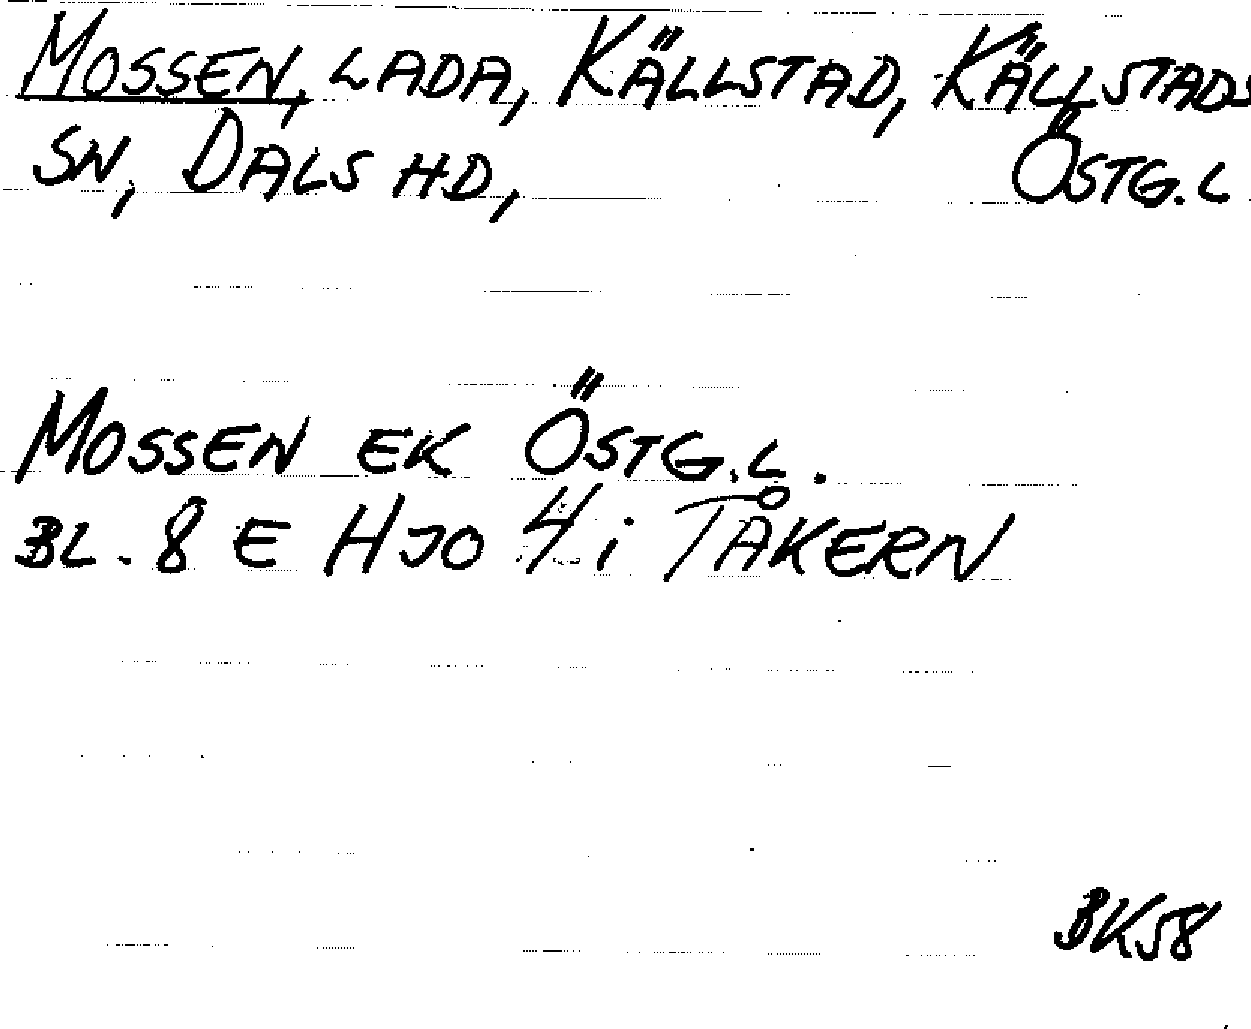 MOSSEN, LADA, KÄLLSTAD, KÄLLSTADS
SN, DALS HD, ÖSTG.L
MOSSEN EK ÖSTG.L.
BL. 8 E HJO 4 i TÅKERN
BK58